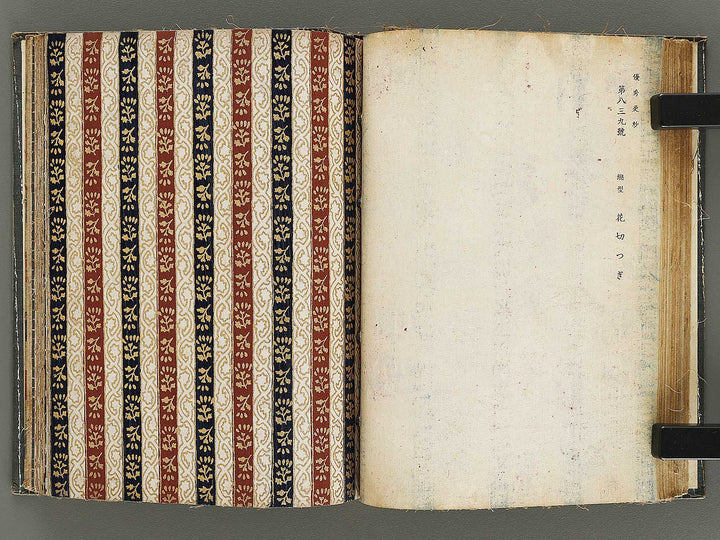 優秀更紗
第八三九號
縦型 花切つぎ